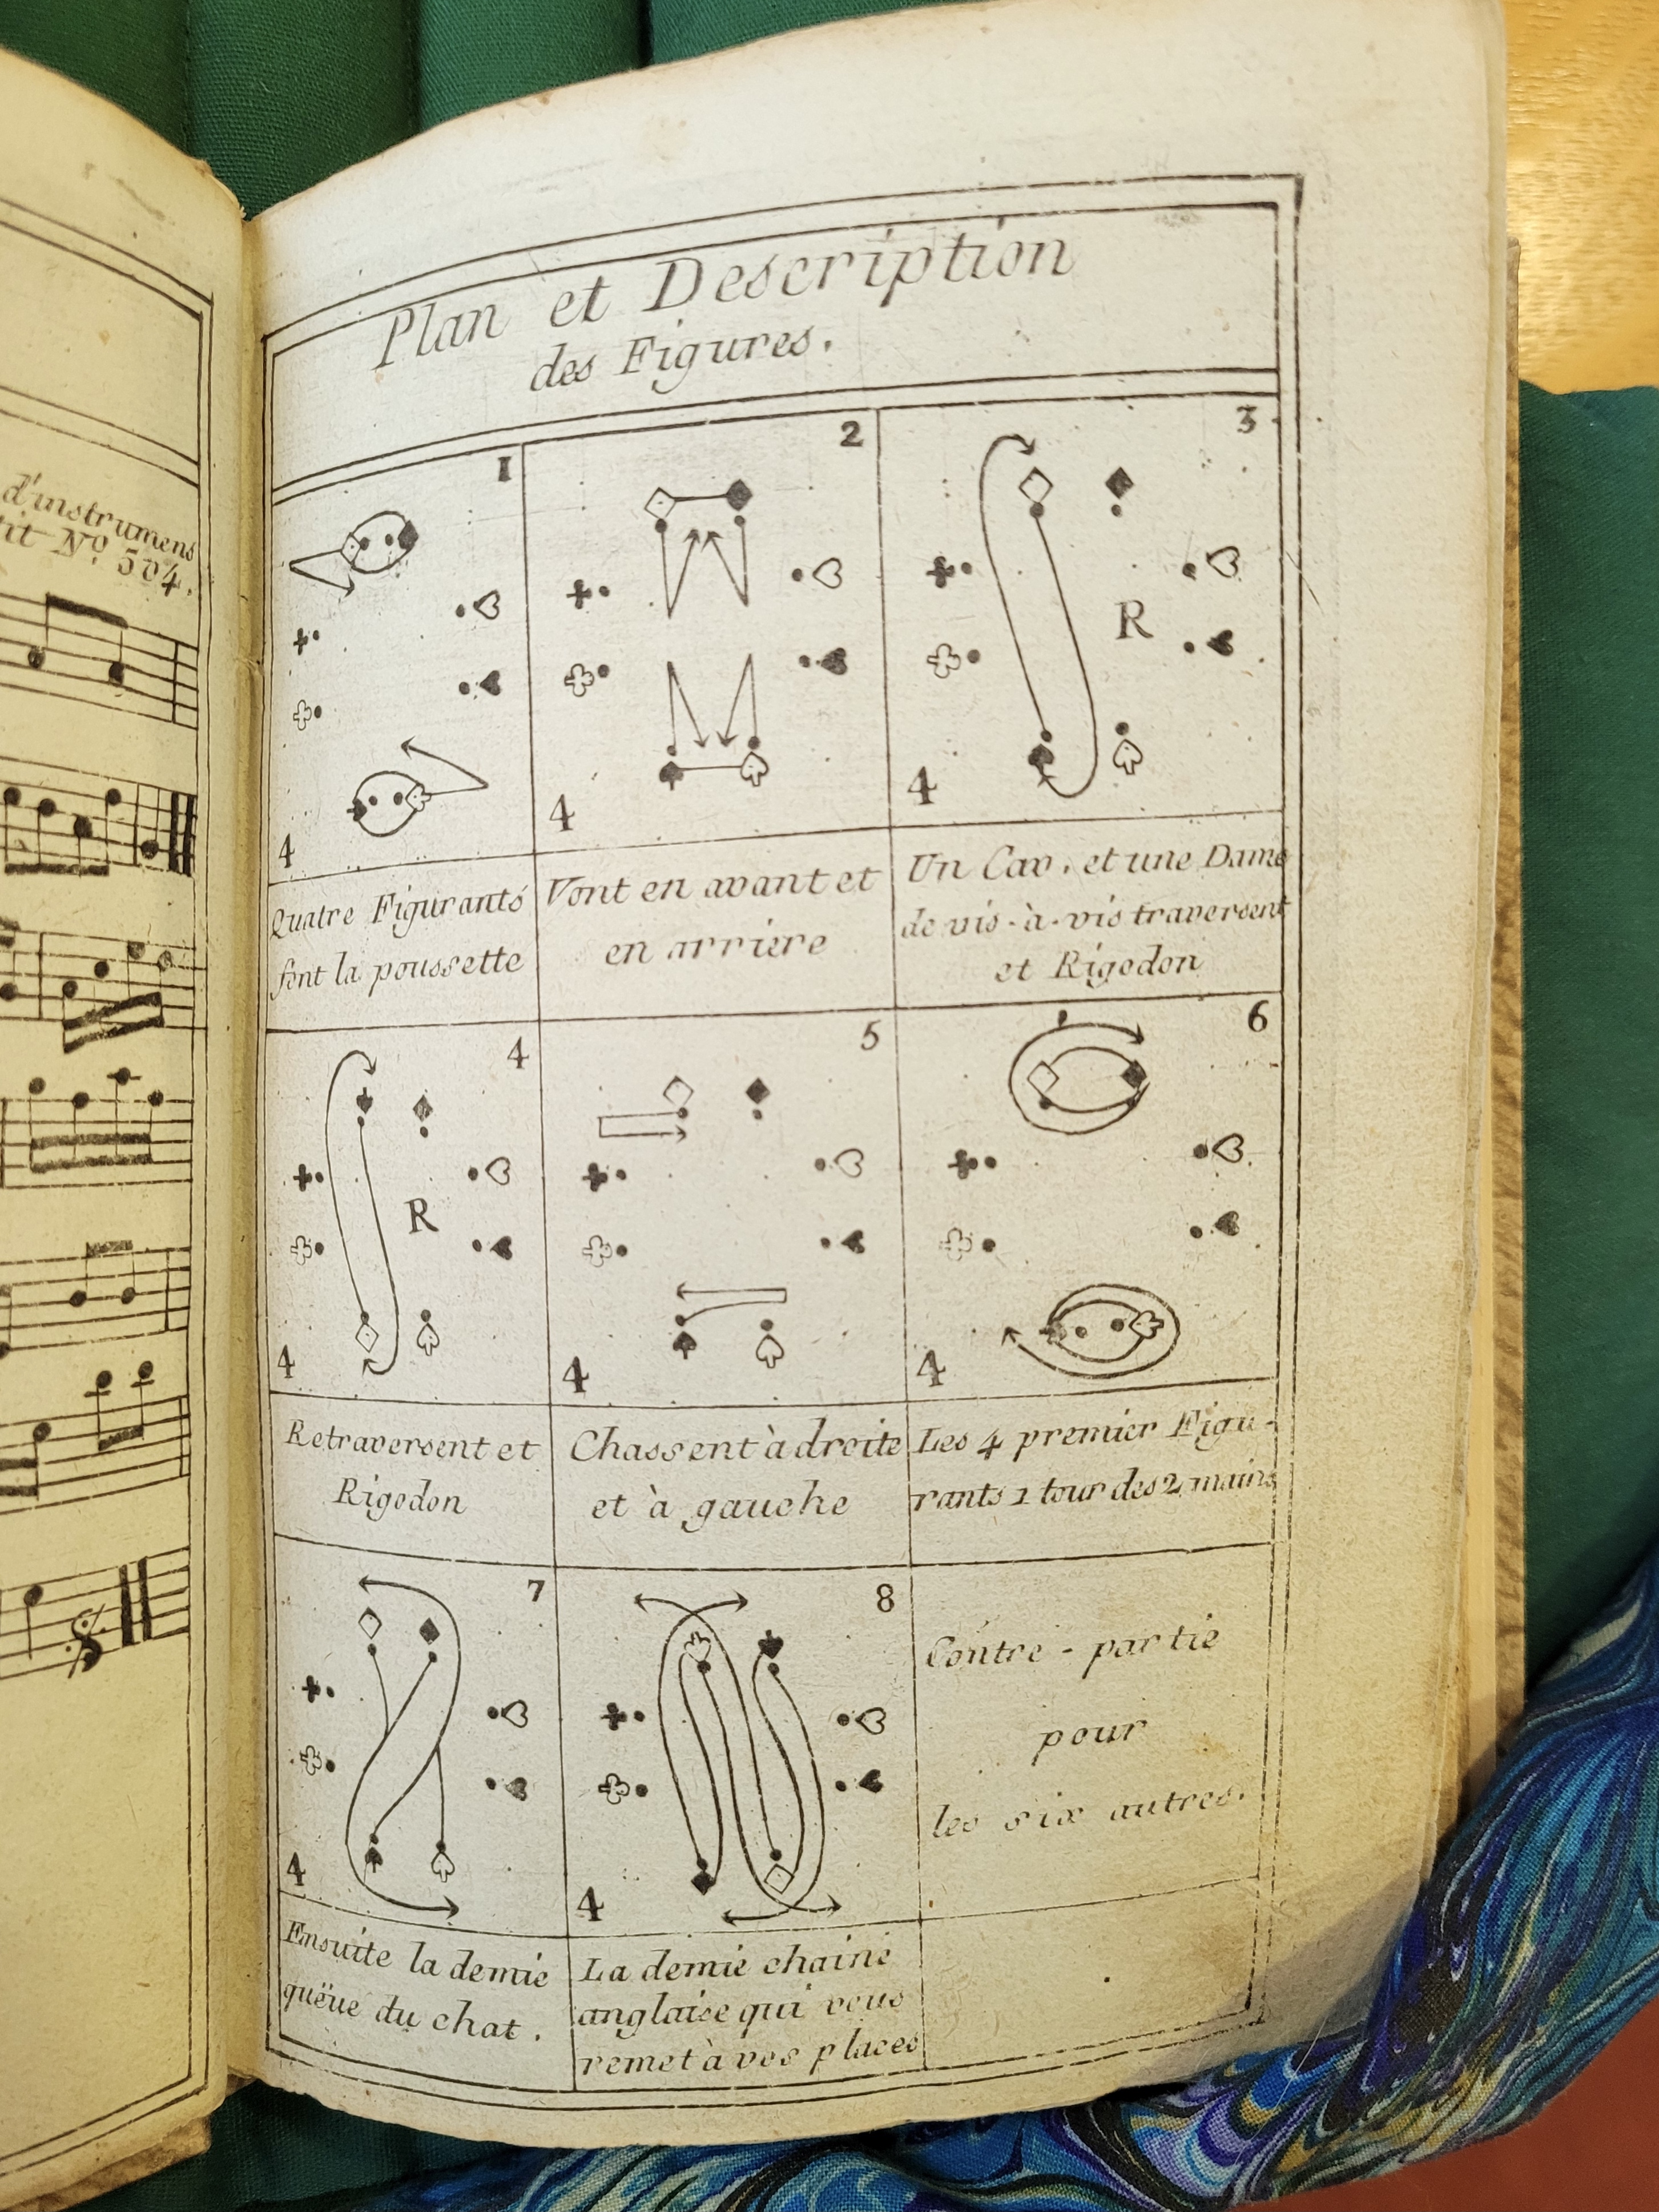 d'instrumens
Nº. 504.
Plan et Description
des Figures.
1
4
Quatre Figurants
font la poussette
2
4
Vont en avant et
en arriere
3
R
4
Un Cav. et une Dame
de vis-à-vis traversent
et Rigodon
4
R
4
Retraversent et
Rigodon
5
4
Chassent à droite
et à gauche
6
4
Les 4 premier Figu-
rants 1 tour des 2 mains
7
4
Ensuite la demie
quëue du chat.
8
4
La demie chaine
anglaise qui vous
remet à vos places
Contre-partie
pour
les six autres.